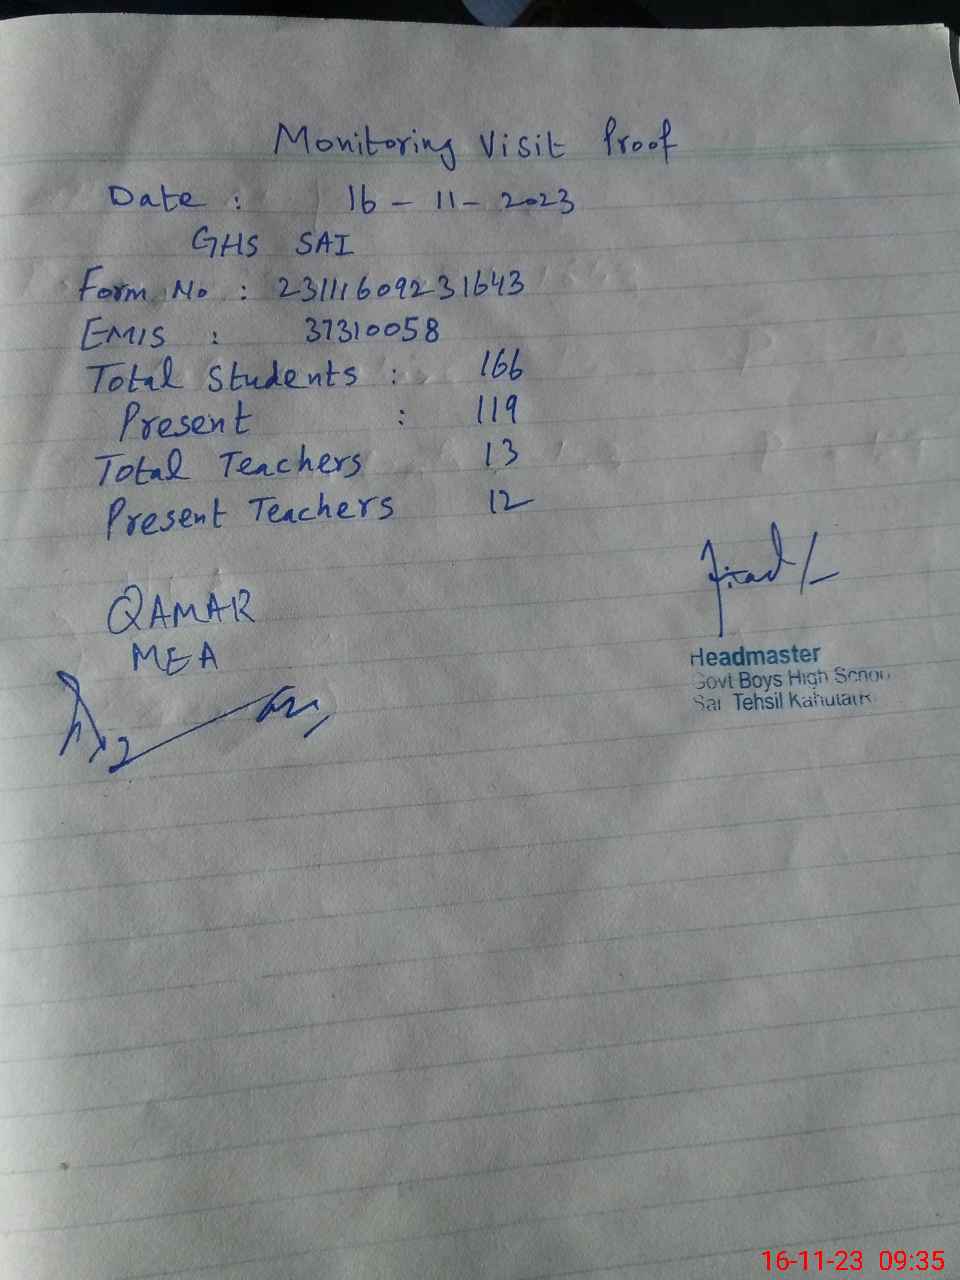 Monitoring Visit Proof
Date : 16 - 11 - 2023
GHS SAI
Form No : 23111609231643
EMIS : 37310058
Total Students : 166
Present : 119
Total Teachers 13
Present Teachers 12
QAMAR
MEA
Headmaster
Govt Boys High School
Sai Tehsil
16-11-23 09:35